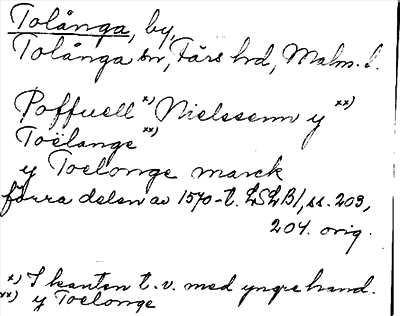 Tolånga, by,
Tolånga sn, Färs hd, Malm. l.
Poffuell x) Nielssenn y xx)
Toëlange xx)
y Toelonge marck
förra delen av 1570-t. LSLB1, ss. 203,
204. orig.
x) I kanten t. v. med yngre hand.
xx) y Toelonge